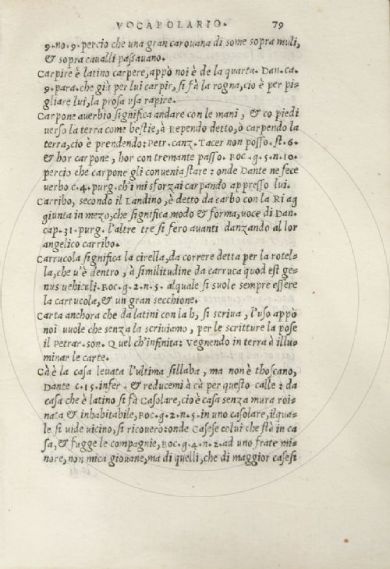 VOCABOLARIO. 79
9. no. 9. percio che una gran carouana di some sopra muli,
& sopra caualli passauano.
Carpire è latino carpere, appò noi è de la quarta. Dan. ca.
9. para. che già per lui carpir, si fà la rogna, cio è per pi=
gliare lui, la prosa usa rapire.
Carpone auerbio significa andare con le mani, & co piedi
uerso la terra come bestie, à Rependo detto, o carpendo la
terra, cio è prendendo: Petr. canz. Tacer non posso. st. 6.
& hor carpone, hor con tremante passo. Boc. g. 5. n. 10.
percio che carpone gli conuenia stare: onde Dante ne fece
uerbo c. 4. purg. ch'i mi sforzai carpando appresso lui.
Carribo, secondo il Landino, è detto da carbo con la Ri ag
giunta in mezo, che significa modo & forma, uoce di Dan.
cap. 31. purg. l'altre tre si fero auanti danzando al lor
angelico carribo.
Carrucola significa la cirella, da correre detta per la rotel=
la, che u'è dentro, à similitudine da carruca quod est ge=
nus uehiculi. Boc. g. 2. n. 5. alquale si suole sempre essere
la carrucola, & un gran secchione.
Carta anchora che da latini con la h, si scriua, l'uso appo
noi uuole che senza la scriuiamo, per le scritture la pose
il petrar. son. Quel ch'infinita: Vegnendo in terra à illu=
minar le carte.
Cà è la casa leuata l'ultima sillaba, ma non è thoscano,
Dante c. 15. infer. & reducemi à cà per questo calle: da
casa che è latino si fà Casolare, cio è casa senza mura roi=
nata & inhabitabile, Boc. g. 2. n. 5. in uno casolare, ilqua=
le si uide uicino, si ricouero: onde Casese colui che stà in ca
sa, & fugge le compagnie, Boc. g. 4. n. 2. ad uno frate mi=
nore, non mica giouane, ma di quelli, che di maggior casesi